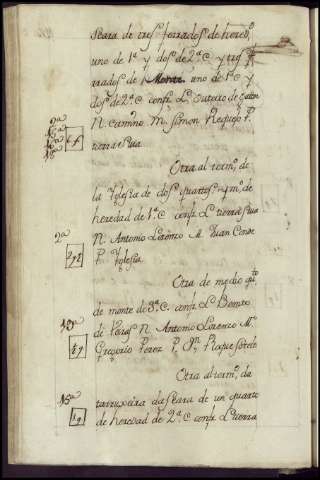 seara de tres ferrados de hered.
uno de 1ª y dos de 2ª C y tres fe
rrados de Monte uno de 1ª C y
dos de 2ª C confr. L. outeiro de
N. camino M. Simon Requeijo P.
tierra suia
Otra al term.º de
la Yglesia de dos quartos y m.º de
heredad de 1ª C. confr. L. tierra suia
2ª
N. Antonio Lorenzo M. Juan Conde
P. Yglesia
Otra de medio qt.º
de monte de 3ª C. confr. L. Benito
de Peres N. Antonio Lorenzo M.
Gregorio Perez P. Roque Sotelo
Otra al term.º da
15ª
tarruxeira da Seara de un quarto
de heredad de 2ª C confr. L. tierra